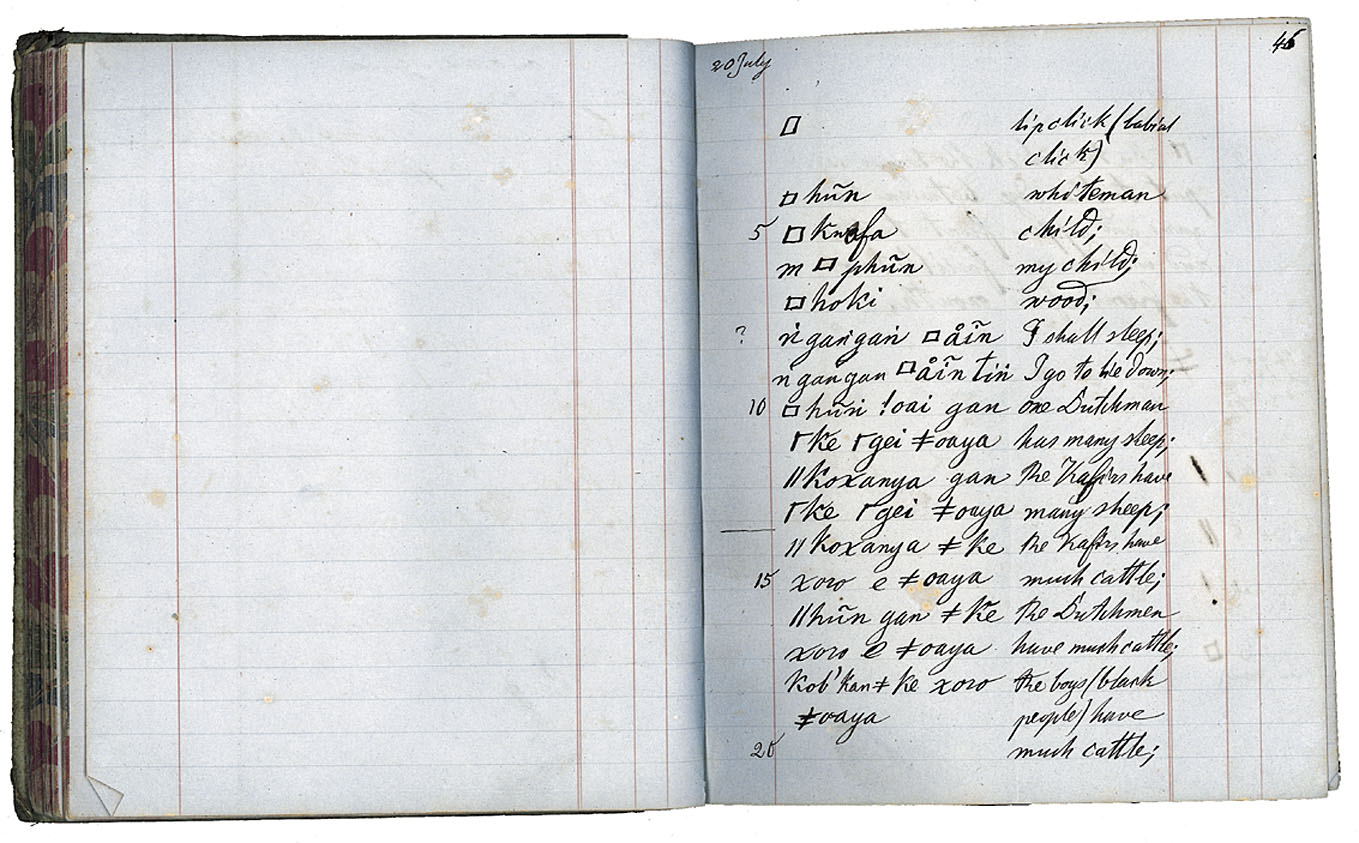 20 July
46
□ lip click (labial
click)
□ hũn whiteman
5 □ child;
m □ phũn my child;
□ hoki wood;
? ṅ gaṅgaṅ □ åĩn I shall sleep;
n gangan □ åĩn tiṅ I go to lie down;
10 □ hũṅ !oai gan one Dutchman
ꓩke ꓩgei ǂoaya has many sheep;
ǁkoxanya gan the Kafirs have
ꓩke ꓩgei ǂoaya many sheep;
ǁkoxanya ǂke the Kafirs have
15 xoro e ǂoaya much cattle;
ǁhũn gan ǂke the Dutchmen
xoro e ǂoaya have much cattle;
kob'kan ǂke xoro the boys (black
ǂoaya people) have
20 much cattle;